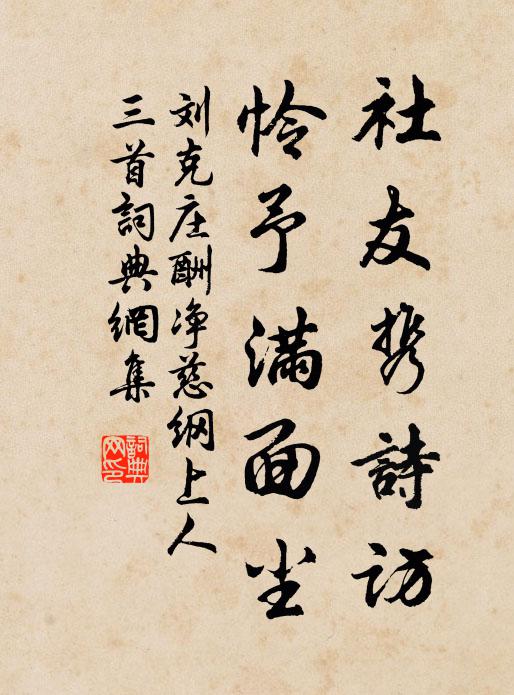 社友携詩访
怜予满面尘
刘克庄酬净慈纲上人
三首詞典網集
詞典网印